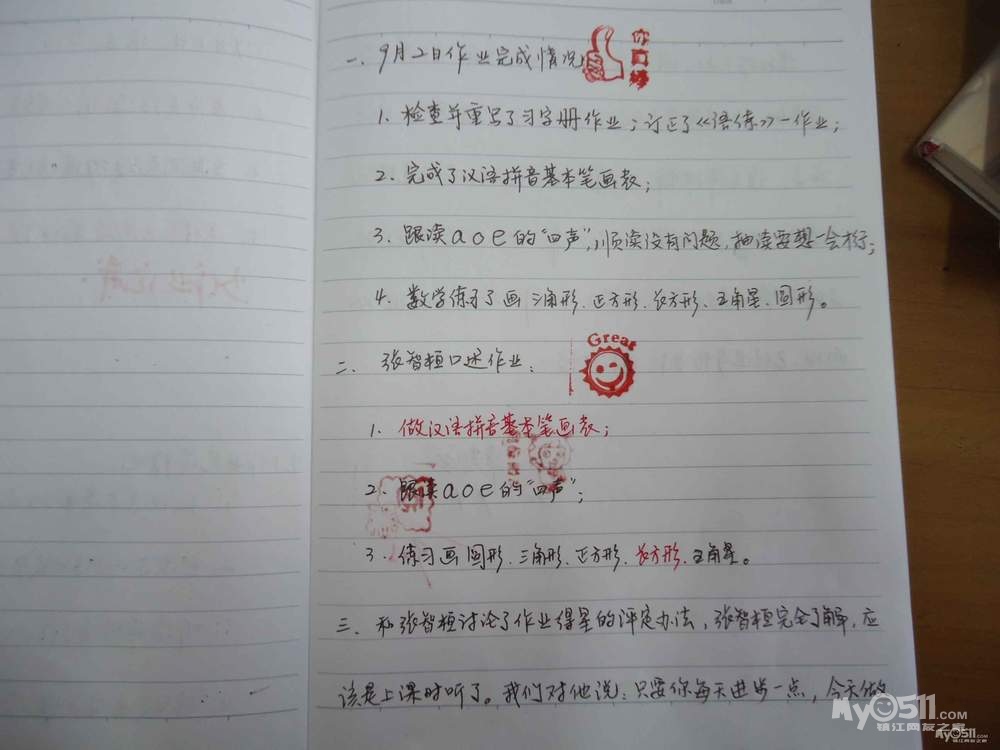 一、9月2日作业完成情况
你真棒
1. 检查并重写了习字册作业；订正了《语练》一作业；
2. 完成了汉语拼音基本笔画表；
3. 跟读 a o e 的“四声”，顺读没有问题，抽读要想一会才行；
4. 数学练习了画三角形、正方形、长方形、五角星、圆形。
Great
二、张智桓口述作业：
1. 做汉语拼音基本笔画表；
2. 跟读 a o e 的“四声”；
3. 练习画圆形、三角形、正方形、长方形、五角星。
三、和张智桓讨论了作业得星的评定办法，张智桓完全了解，应
该是上课时听了。我们对他说：只要你每天进步一点，今天做
My0511.COM
镇江网友之家
My0511.COM
镇江网友之家